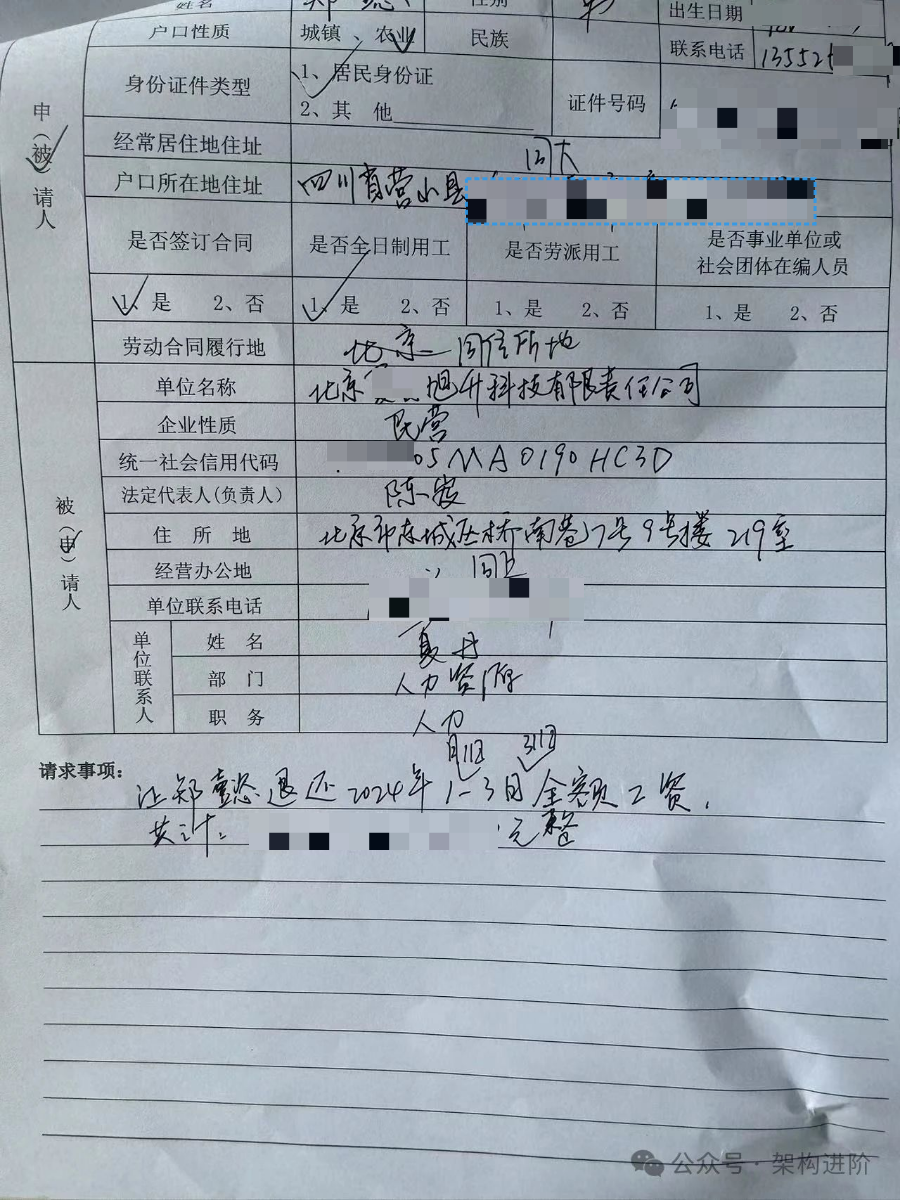 姓名 郑 性别 男 出生日期
户口性质 城镇、农业 民族 联系电话 13552
身份证件类型 1、居民身份证 2、其 他 证件号码
经常居住地住址 同下
户口所在地住址 四川省营山县
申(被)请人
是否签订合同 是否全日制用工 是否劳派用工 是否事业单位或社会团体在编人员
1、是 2、否 1、是 2、否 1、是 2、否 1、是 2、否
劳动合同履行地 北京 同住所地
单位名称 北京 旭升科技有限责任公司
企业性质 民营
统一社会信用代码 05MA0190HC3D
法定代表人(负责人) 陈
住 所 地 北京市东城区 桥南巷7号9号楼219室
被(申)请人
经营办公地 同上
单位联系电话
单位联系人
姓 名 夏丹
部 门 人力资源
职 务 人力
月1日 31日
请求事项:
让郑懿退还2024年1-3月全额工资,
共计: 元整
公众号·架构进阶